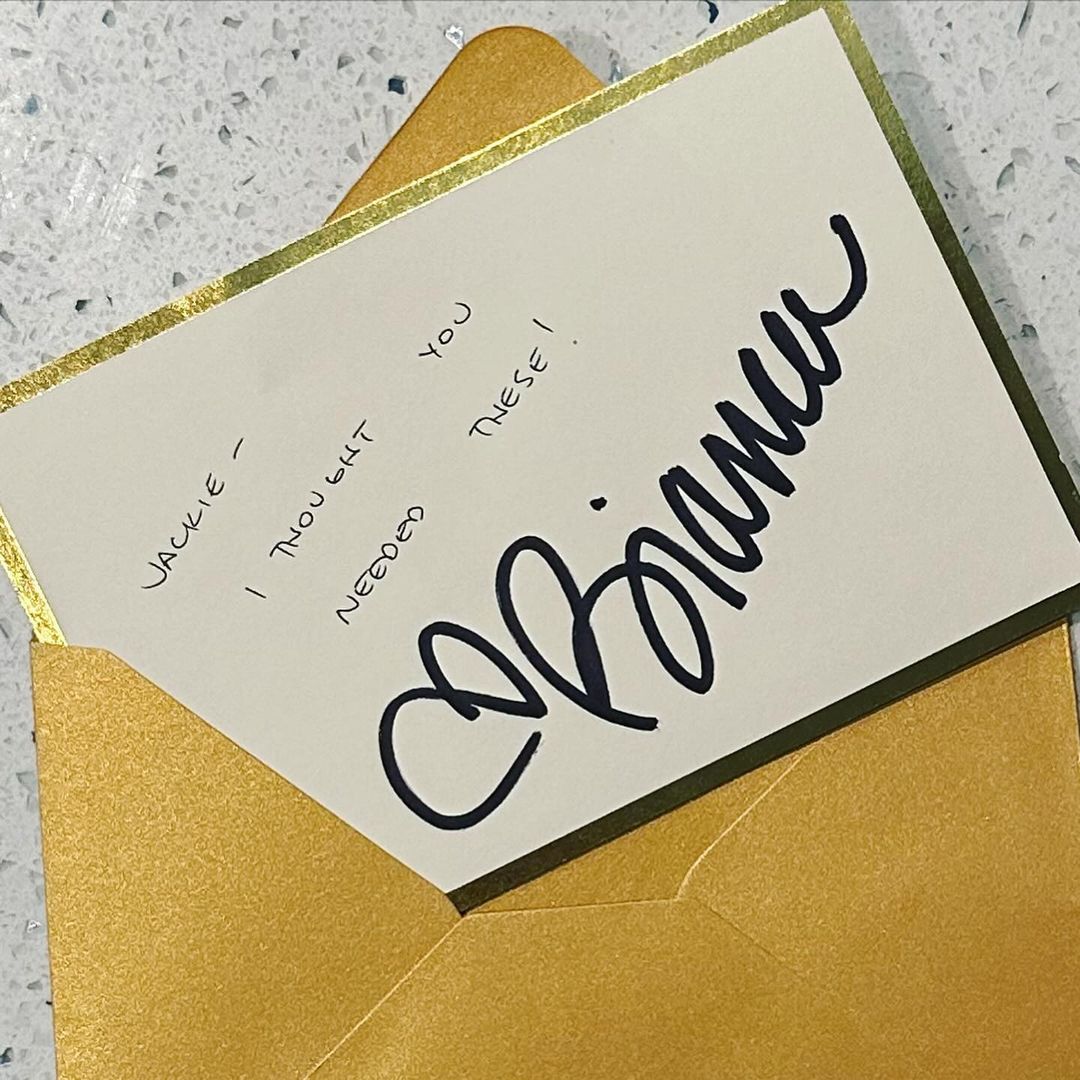 JACKIE -
I THOUGHT YOU
NEEDED THESE!
♡ Bianca